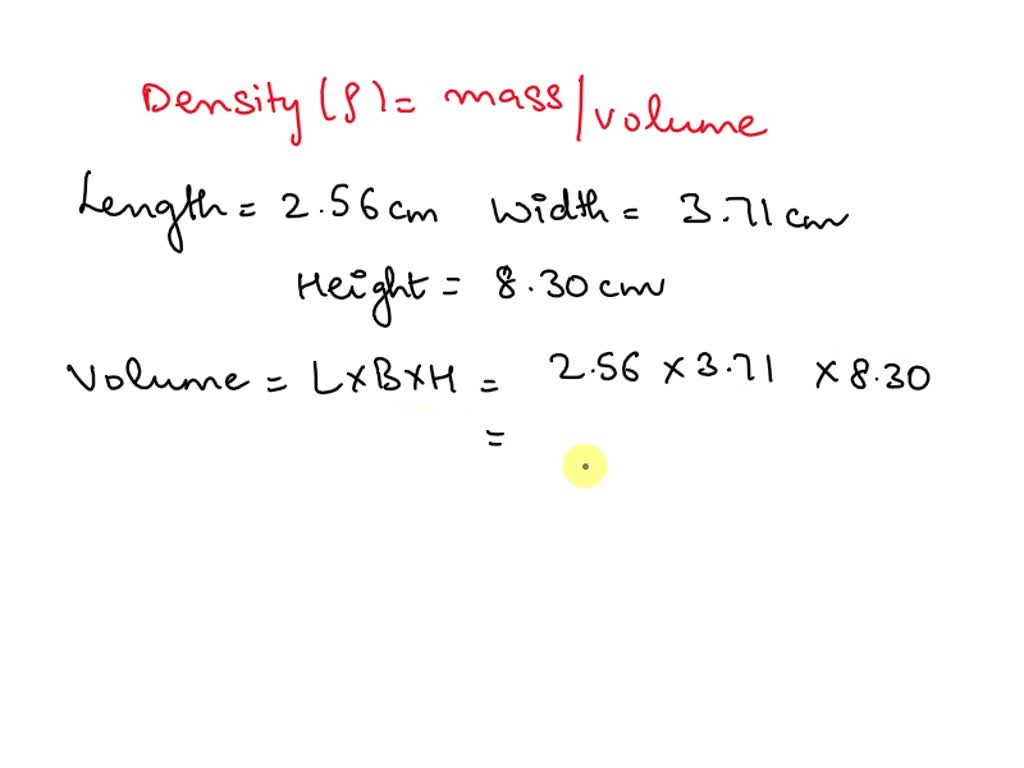 Density (ρ) = mass/volume
Length = 2.56 cm Width = 3.71 cm
Height = 8.30 cm
Volume = L×B×H = 2.56 × 3.71 × 8.30
=